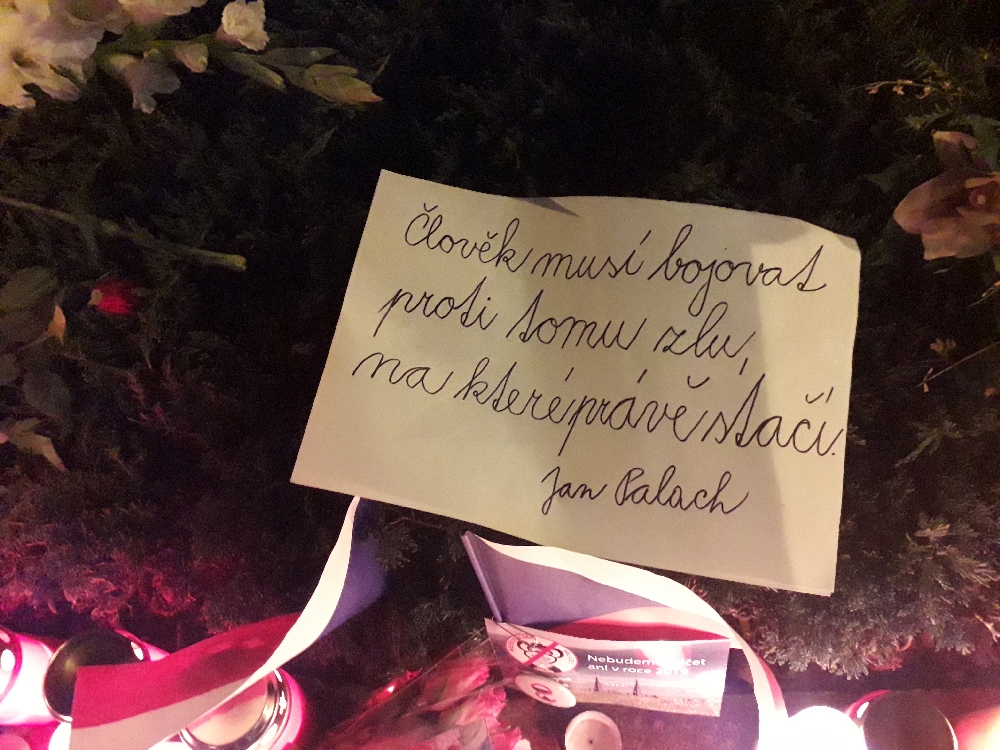 Člověk musí bojovat
proti tomu zlu,
na které právě stačí.
Jan Palach
ani v roce